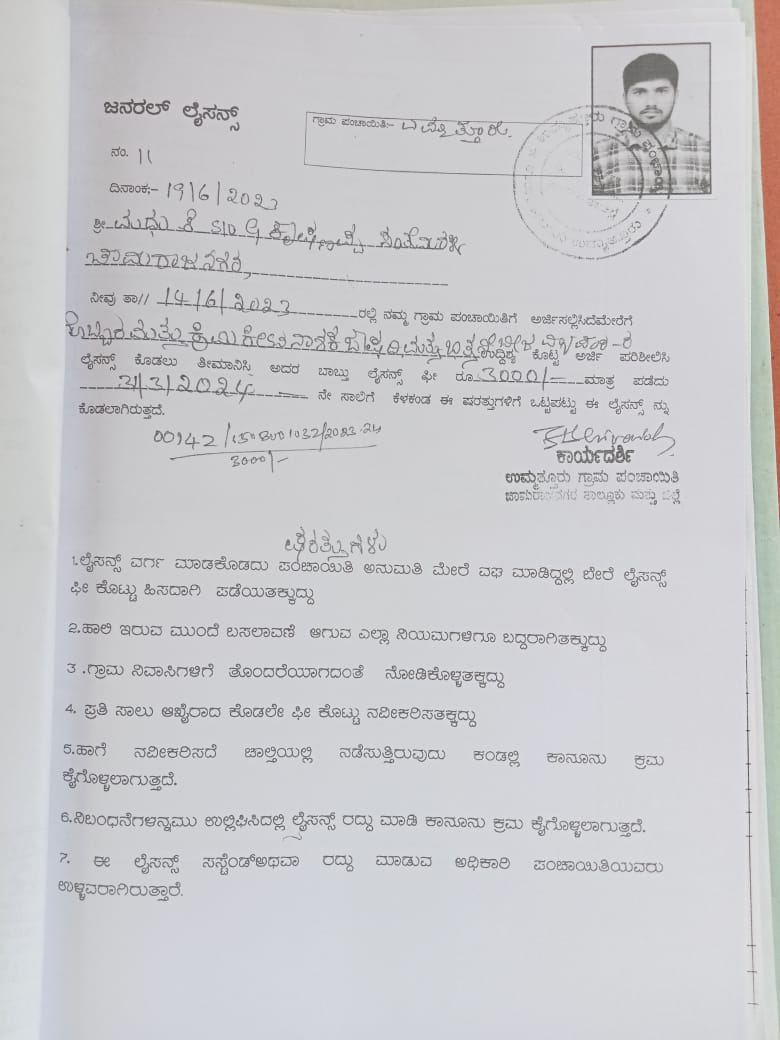 ಜನರಲ್ ಲೈಸನ್ಸ್
ಗ್ರಾಮ ಪಂಚಾಯಿತಿ:- ಉಮ್ಮತ್ತೂರು.
ನಂ. 11
ದಿನಾಂಕ:- 19/6/2023
ಶ್ರೀ ಮಧು ಕೆ S/o
ಚಾಮರಾಜನಗರ,
ನೀವು ತಾ// 14/6/2023 ರಲ್ಲಿ ನಮ್ಮ ಗ್ರಾಮ ಪಂಚಾಯಿತಿಗೆ ಅರ್ಜಿಸಲ್ಲಿಸಿದೆಮೇರೆಗೆ
ಗೊಬ್ಬರ ಮತ್ತು ಕ್ರಿಮಿ ಕೀಟನಾಶಕ ಉದ್ದಿಶ್ಯ ಕೊಟ್ಟ ಅರ್ಜಿ ಪರಿಶೀಲಿಸಿ
ಲೈಸನ್ಸ್ ಕೊಡಲು ತೀಮಾನಿಸಿ ಅದರ ಬಾಬ್ತು ಲೈಸನ್ಸ್ ಫೀ ರೂ 3000/- ಮಾತ್ರ ಪಡೆದು
31/3/2024 ನೇ ಸಾಲಿಗೆ ಕೆಳಕಂಡ ಈ ಷರತ್ತುಗಳಿಗೆ ಒಟ್ಟಪಟ್ಟು ಈ ಲೈಸನ್ಸ್ ನ್ನು
ಕೊಡಲಾಗಿರುತ್ತದೆ.
3000/-
ಕಾರ್ಯದರ್ಶಿ
ಉಮ್ಮತ್ತೂರು ಗ್ರಾಮ ಪಂಚಾಯಿತಿ
ಚಾಮರಾಜನಗರ ತಾಲ್ಲೂಕು ಮತ್ತು ಜಿಲ್ಲೆ
ಷರತ್ತುಗಳು
1.ಲೈಸನ್ಸ್ ವರ್ಗ ಮಾಡಕೊಡದು ಪಂಚಾಯಿತಿ ಅನುಮತಿ ಮೇರೆ ವಘ ಮಾಡಿದ್ದಲ್ಲಿ ಬೇರೆ ಲೈಸನ್ಸ್
ಫೀ ಕೊಟ್ಟು ಹಿಸದಾಗಿ ಪಡೆಯತಕ್ಕುದ್ದು
2.ಹಾಲಿ ಇರುವ ಮುಂದೆ ಬಸಲಾವಣೆ ಆಗುವ ಎಲ್ಲಾ ನಿಯಮಗಳಿಗೂ ಬದ್ದರಾಗಿತಕ್ಕುದ್ದು
3 .ಗ್ರಾಮ ನಿವಾಸಿಗಳಿಗೆ ತೊಂದರೆಯಾಗದಂತೆ ನೋಡಿಕೊಳ್ಳತಕ್ಕದ್ದು
4. ಪ್ರತಿ ಸಾಲು ಆಖೈರಾದ ಕೊಡಲೇ ಫೀ ಕೊಟ್ಟು ನವೀಕರಿಸತಕ್ಕದ್ದು
5.ಹಾಗೆ ನವೀಕರಿಸದೆ ಚಾಲ್ತಿಯಲ್ಲಿ ನಡೆಸುತ್ತಿರುವುದು ಕಂಡಲ್ಲಿ ಕಾನೂನು ಕ್ರಮ
ಕೈಗೊಳ್ಳಲಾಗುತ್ತದೆ.
6.ನಿಬಂಧನೆಗಳನ್ನಮು ಉಲ್ಲಿಘಿಸಿದಲ್ಲಿ ಲೈಸನ್ಸ್ ರದ್ದು ಮಾಡಿ ಕಾನೂನು ಕ್ರಮ ಕೈಗೊಳ್ಳಲಾಗುತ್ತದೆ.
7. ಈ ಲೈಸನ್ಸ್ ಸಸ್ಪೆಂಡ್‌ಅಥವಾ ರದ್ದು ಮಾಡುವ ಅಧಿಕಾರಿ ಪಂಚಾಯಿತಿಯವರು
ಉಳ್ಳವರಾಗಿರುತ್ತಾರೆ.